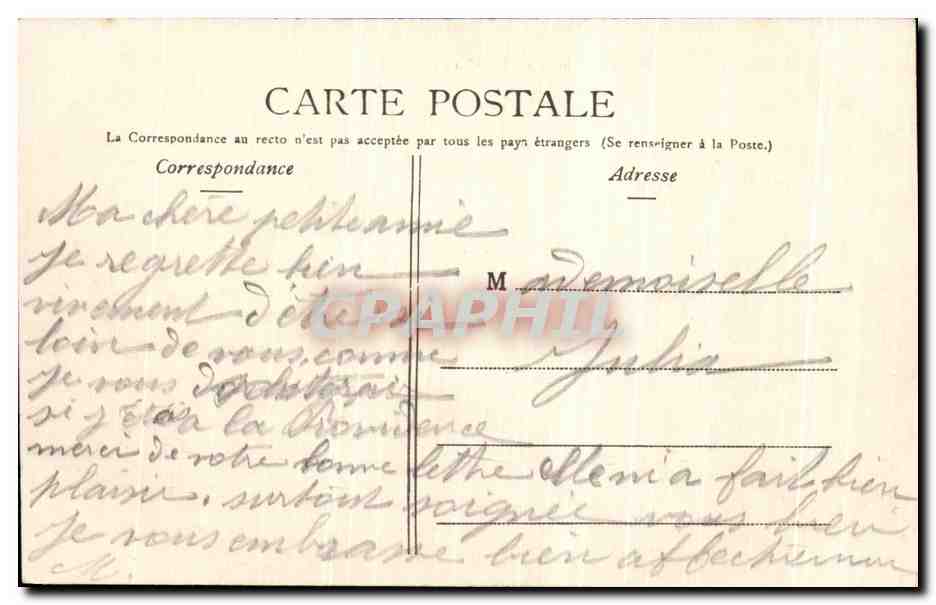 CARTE POSTALE
La Correspondance au recto n'est pas acceptée par tous les pays étrangers (Se renseigner à la Poste.)
Correspondance
Ma chère petite amie
je regrette bien
vivement d'être si
loin de vous, comme
je vous
si j'étais à la Providence
merci de votre bonne lettre Elle m'a fait bien
plaisir. surtout soignée vous bien
Je vous embrasse bien affectueu
M.
Adresse
Mademoiselle
Julia
CPAPHIL